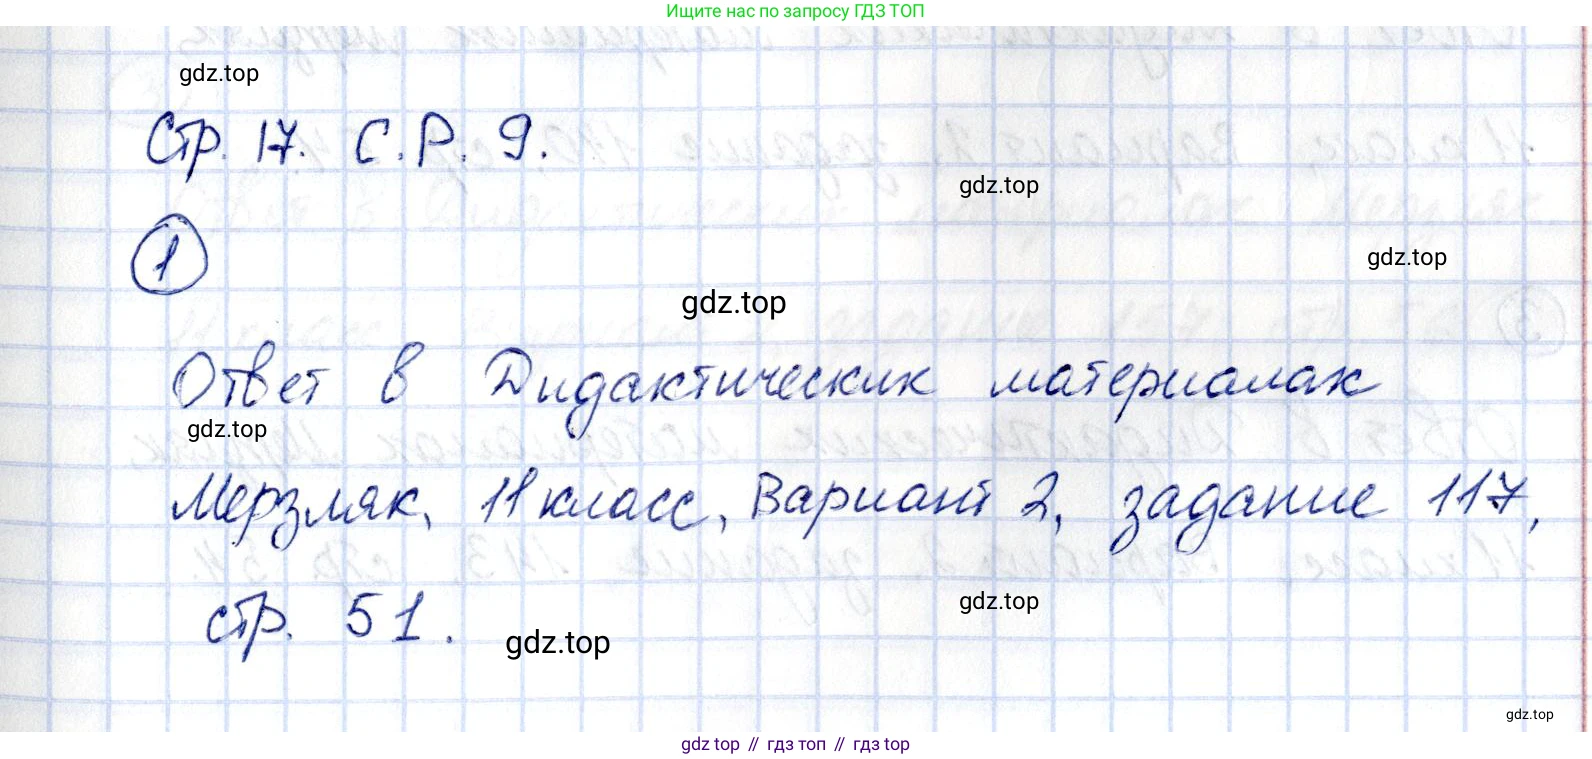 Ищите нас по запросу ГДЗ ТОП
gdz.top
Стр. 17. С.Р. 9.
gdz.top
1
gdz.top
gdz.top
Ответ в Дидактических материалах
gdz.top
Мерзляк, 11 класс, Вариант 2, задание 117,
стр. 51.
gdz.top
gdz.top
gdz.top
gdz.top // гдз топ // гдз top